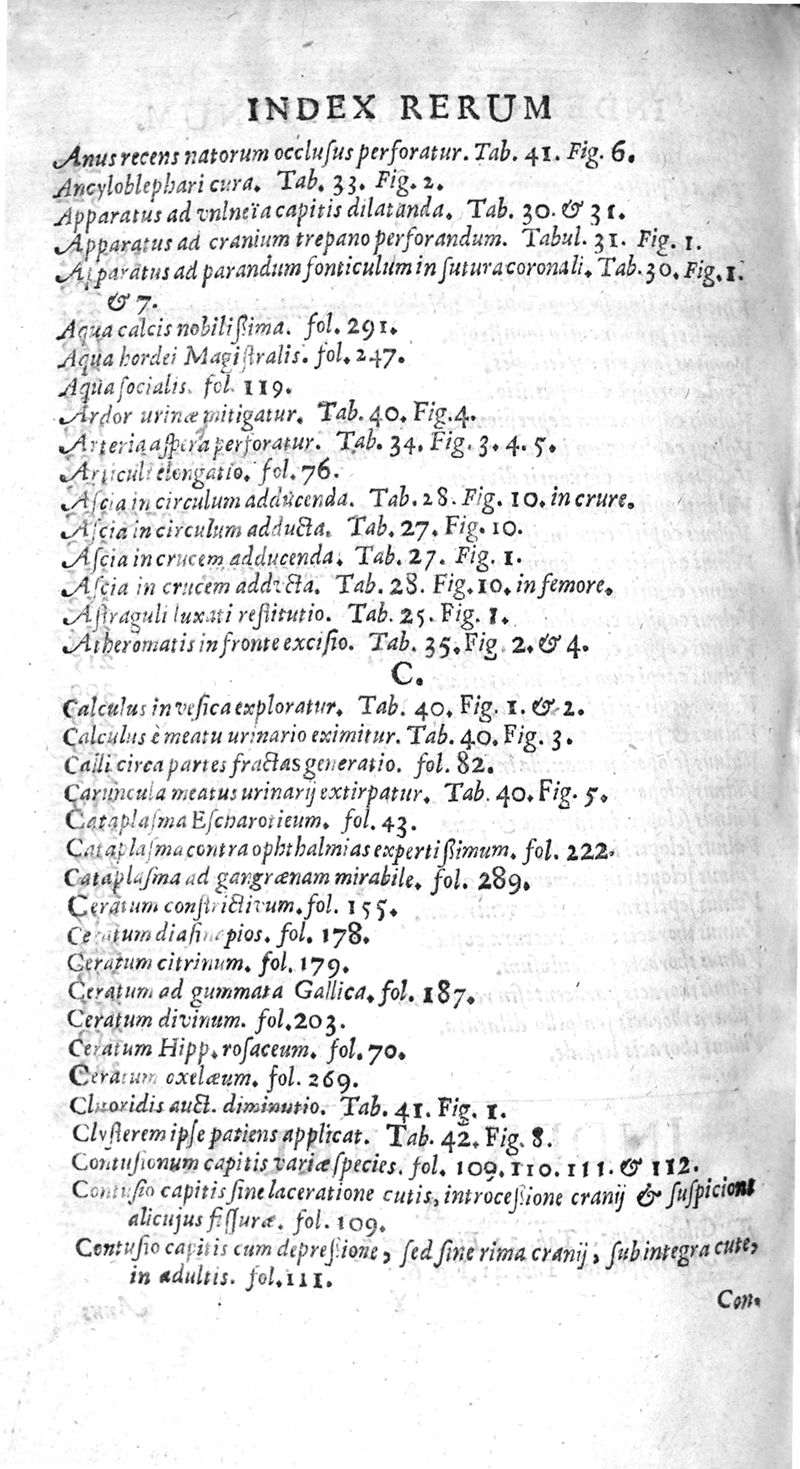 INDEX RERUM
Anus recens natorum occluſus perforatur. Tab. 41. Fig. 6.
Ancyloblephari cura. Tab. 33. Fig. 2.
Apparatus ad vnlneïa capitis dilatanda. Tab. 30. & 31.
Apparatus ad cranium trepano perforandum. Tabul. 31. Fig. 1.
Apparatus ad parandum fonticulum in ſutura coronali. Tab. 30. Fig. 1.
& 7.
Aqua calcis nobilißima. fol. 291.
Aqua hordei Magiſtralis. fol. 247.
Aqua ſocialis. fol. 119.
Ardor urinæ mitigatur. Tab. 40. Fig. 4.
Arteria aſpera perforatur. Tab. 34. Fig. 3. 4. 5.
Articuli elongatio. fol. 76.
Aſcia in circulum adducenda. Tab. 28. Fig. 10. in crure.
Aſcia in circulum adducta. Tab. 27. Fig. 10.
Aſcia in crucem adducenda. Tab. 27. Fig. 1.
Aſcia in crucem adducta. Tab. 28. Fig. 10. in femore.
Aſtraguli luxati reſtitutio. Tab. 25. Fig. 1.
Atheromatis in fronte exciſio. Tab. 35. Fig. 2. & 4.
C.
Calculus in veſica exploratur. Tab. 40. Fig. 1. & 2.
Calculus è meatu urinario eximitur. Tab. 40. Fig. 3.
Calli circa partes fractas generatio. fol. 82.
Caruncula meatus urinarij extirpatur. Tab. 40. Fig. 5.
Cataplaſma Eſcharoticum. fol. 43.
Cataplaſma contra ophthalmias expertißimum. fol. 222.
Cataplaſma ad gangrænam mirabile. fol. 289.
Ceratum conſtrictivum. fol. 155.
Ceratum diaſinapios. fol. 178.
Ceratum citrinum. fol. 179.
Ceratum ad gummata Gallica. fol. 187.
Ceratum divinum. fol. 203.
Ceratum Hipp. roſaceum. fol. 70.
Ceratum oxelæum. fol. 269.
Clitoridis auct. diminutio. Tab. 41. Fig. 1.
Clyſterem ipſe patiens applicat. Tab. 42. Fig. 8.
Contuſionum capitis variæ ſpecies. fol. 109. 110. 111. & 112.
Contuſio capitis ſine laceratione cutis, introceßione cranij & ſuſpicione
alicujus fiſſuræ. fol. 109.
Contuſio capitis cum depreßione, ſed ſine rima cranij, ſub integra cute,
in adultis. fol. 111.
Con.